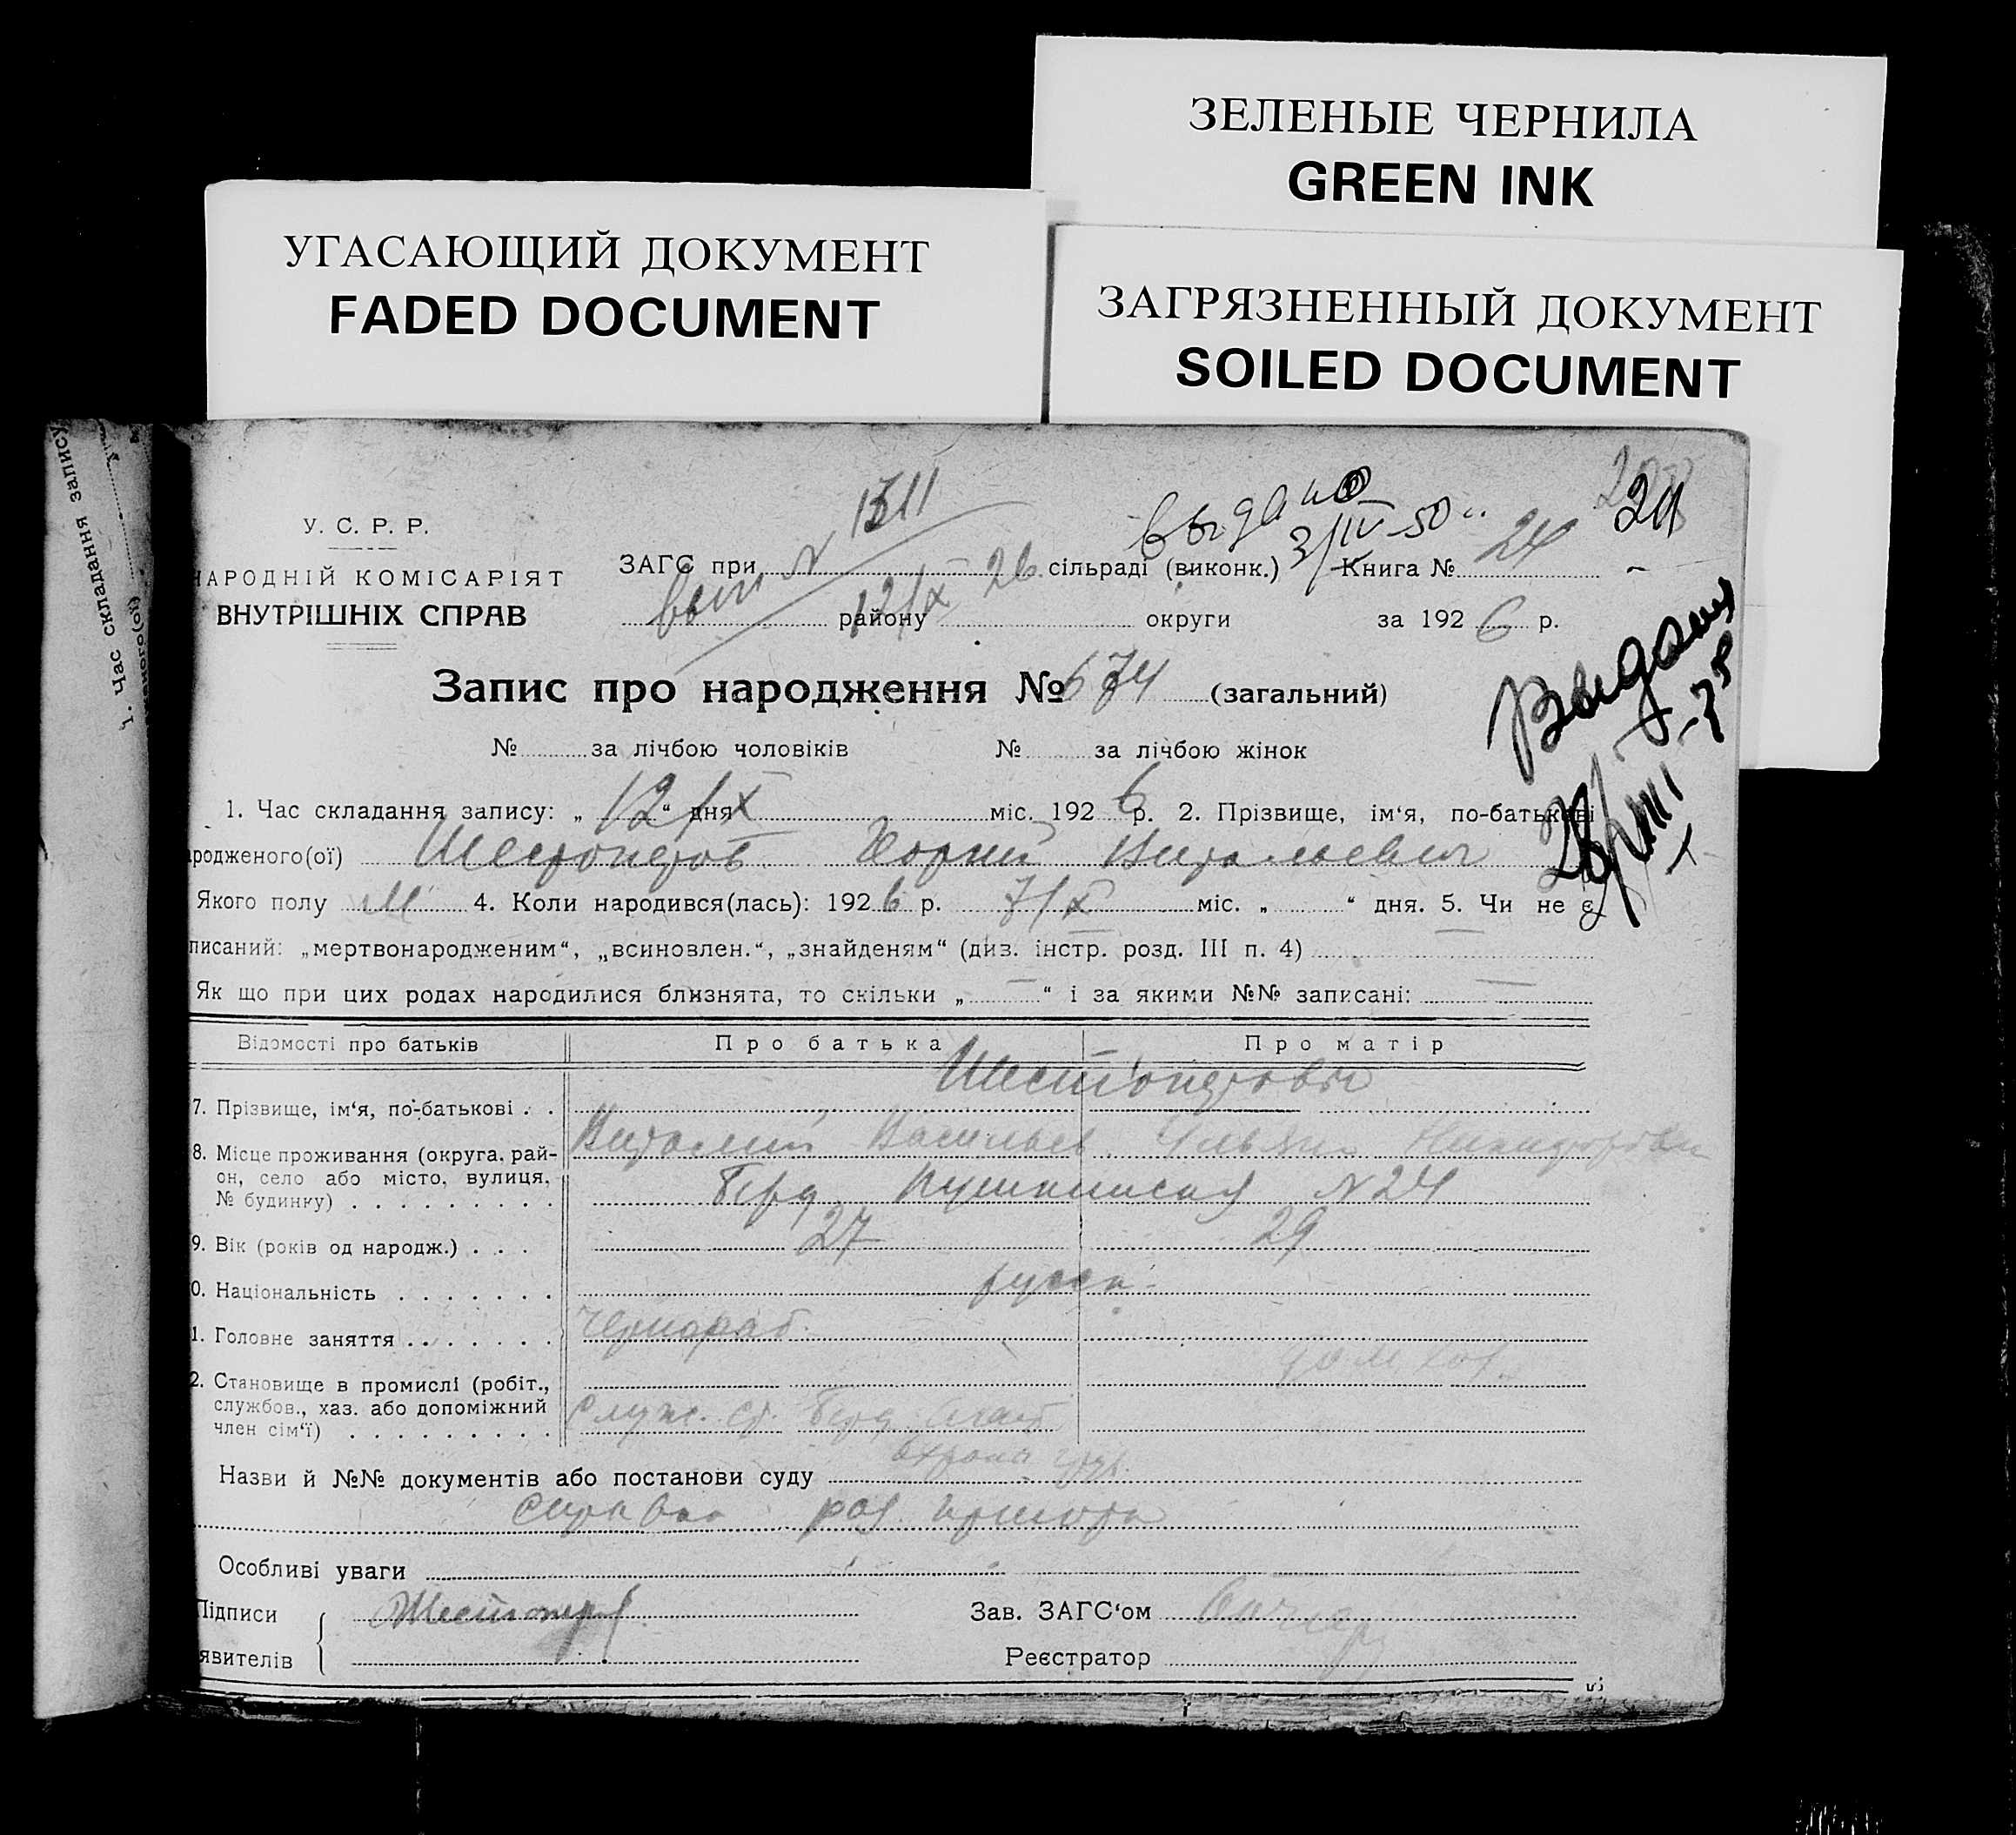 ЗЕЛЕНЫЕ ЧЕРНИЛА
GREEN INK
УГАСАЮЩИЙ ДОКУМЕНТ
FADED DOCUMENT
ЗАГРЯЗНЕННЫЙ ДОКУМЕНТ
SOILED DOCUMENT
1. Час складання запису
У. С. Р. Р.
НАРОДНІЙ КОМІСАРІЯТ
ВНУТРІШНІХ СПРАВ
1511
выдано
3/IV-50
24
ЗАГС при N сільраді (виконк.) Книга № 24
вып 12/X 26
району округи за 1926 р.
Выдано
Запис про народження № 674 (загальний)
№ за лічбою чоловіків № за лічбою жінок
1. Час складання запису: „ 12/X “ дня міс. 1926 р. 2. Прізвище, ім‘я, по-батькові
родженого(ої) Шестопалов Юрий Витальевич
Якого полу М 4. Коли народився(лась): 1926 р. 7/X міс. „ “ дня. 5. Чи не є
писаний: „мертвонародженим“, „всиновлен.“, „знайденям“ (диз. інстр. розд. III п. 4) —
Як що при цих родах народилися близнята, то скільки „ — “ і за якими №№ записані: —
Відомості про батьків Про батька Про матір
7. Прізвище, ім‘я, по-батькові . .
Виталий Васильев.
8. Місце проживання (округа, рай-
он, село або місто, вулиця,
№ будинку)
Берд Пушкинская N 24
9. Вік (років од народж.) . . . 27 29
0. Національність русск.
1. Головне заняття Чернораб.
дом хоз.
2. Становище в промислі (робіт.,
службов., хаз. або допоміжний
член сім‘ї)
Служ. ст. Берд
охрана
Назви й №№ документів або постанови суду
справка
Особливі уваги
Підписи
явителів
Зав. ЗАГС‘ом
Реєстратор